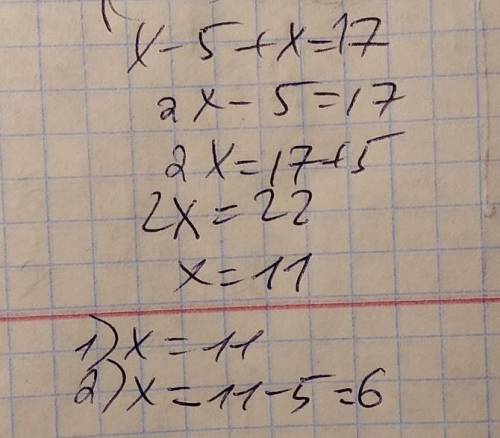 x - 5 + x = 17
2x - 5 = 17
2x = 17 + 5
2x = 22
x = 11
1) x = 11
2) x = 11 - 5 = 6